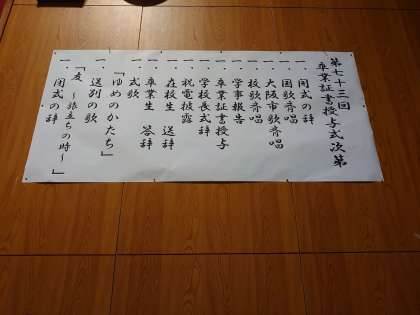 第七十三回
卒業証書授与式次第
一 開式の辞
一 国歌斉唱
一 大阪市歌斉唱
一 校歌斉唱
一 学事報告
一 卒業証書授与
一 学校長式辞
一 祝電披露
一 在校生 送辞
一 卒業生 答辞
一 式歌
『ゆめのかたち』
一 送別の歌
『友 ～旅立ちの時～』
一 閉式の辞